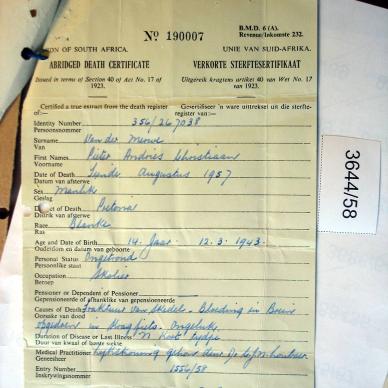 B.M.D. 6 (A).
Revenue/Inkomste 232.
No 190007
ON OF SOUTH AFRICA.
UNIE VAN SUID-AFRIKA.
ABRIDGED DEATH CERTIFICATE
VERKORTE STERFTESERTIFIKAAT
Issued in terms of Section 40 of Act No. 17 of 1923.
Uitgereik kragtens artikel 40 van Wet No. 17 van 1923.
Certified a true extract from the death register of:—
Gesertifiseer 'n ware uittreksel uit die sterfteregister van:—
Identity Number 356/267038
Persoonsnommer
Surname Van der Merwe
Van
First Names Pieter Andries Christiaan
Voorname
Date of Death Augustus 1957
Datum van afsterwe
Sex Manlik
Geslag
District of Death Pretoria
Distrik van afsterwe
Race Blanke
Ras
Age and Date of Birth 14 Jaar. 12.3.1943.
Ouderdom en datum van geboorte
Personal Status Ongetroud
Persoonlike staat
Occupation Skolier
Beroep
Pensioner or Dependent of Pensioner
Gepensioeneerde of afhanklike van gepensioeneerde
Causes of Death Fraktuur van Skedel - Bloeding in Brein
Oorsake van dood Ongeluk
Duration of Disease or Last Illness 'n Kort tydjie
Duur van kwaal of laaste siekte
Medical Practitioner
Geneesheer
Entry No. 1556/58
Inskrywingsnommer
3644/58